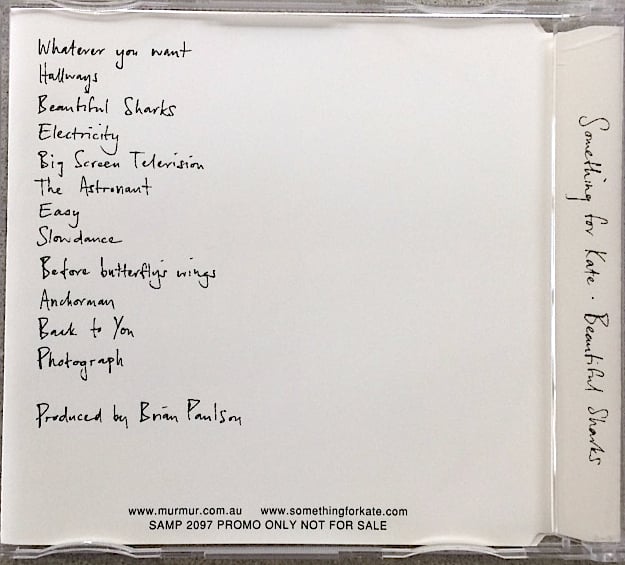 Whatever you want
Hallways
Beautiful Sharks
Electricity
Big Screen Television
The Astronaut
Easy
Slowdance
Before butterfly's wings
Anchorman
Back to You
Photograph
Produced by Brian Paulson
www.murmur.com.au www.somethingforkate.com
SAMP 2097 PROMO ONLY NOT FOR SALE
Something for Kate · Beautiful Sharks